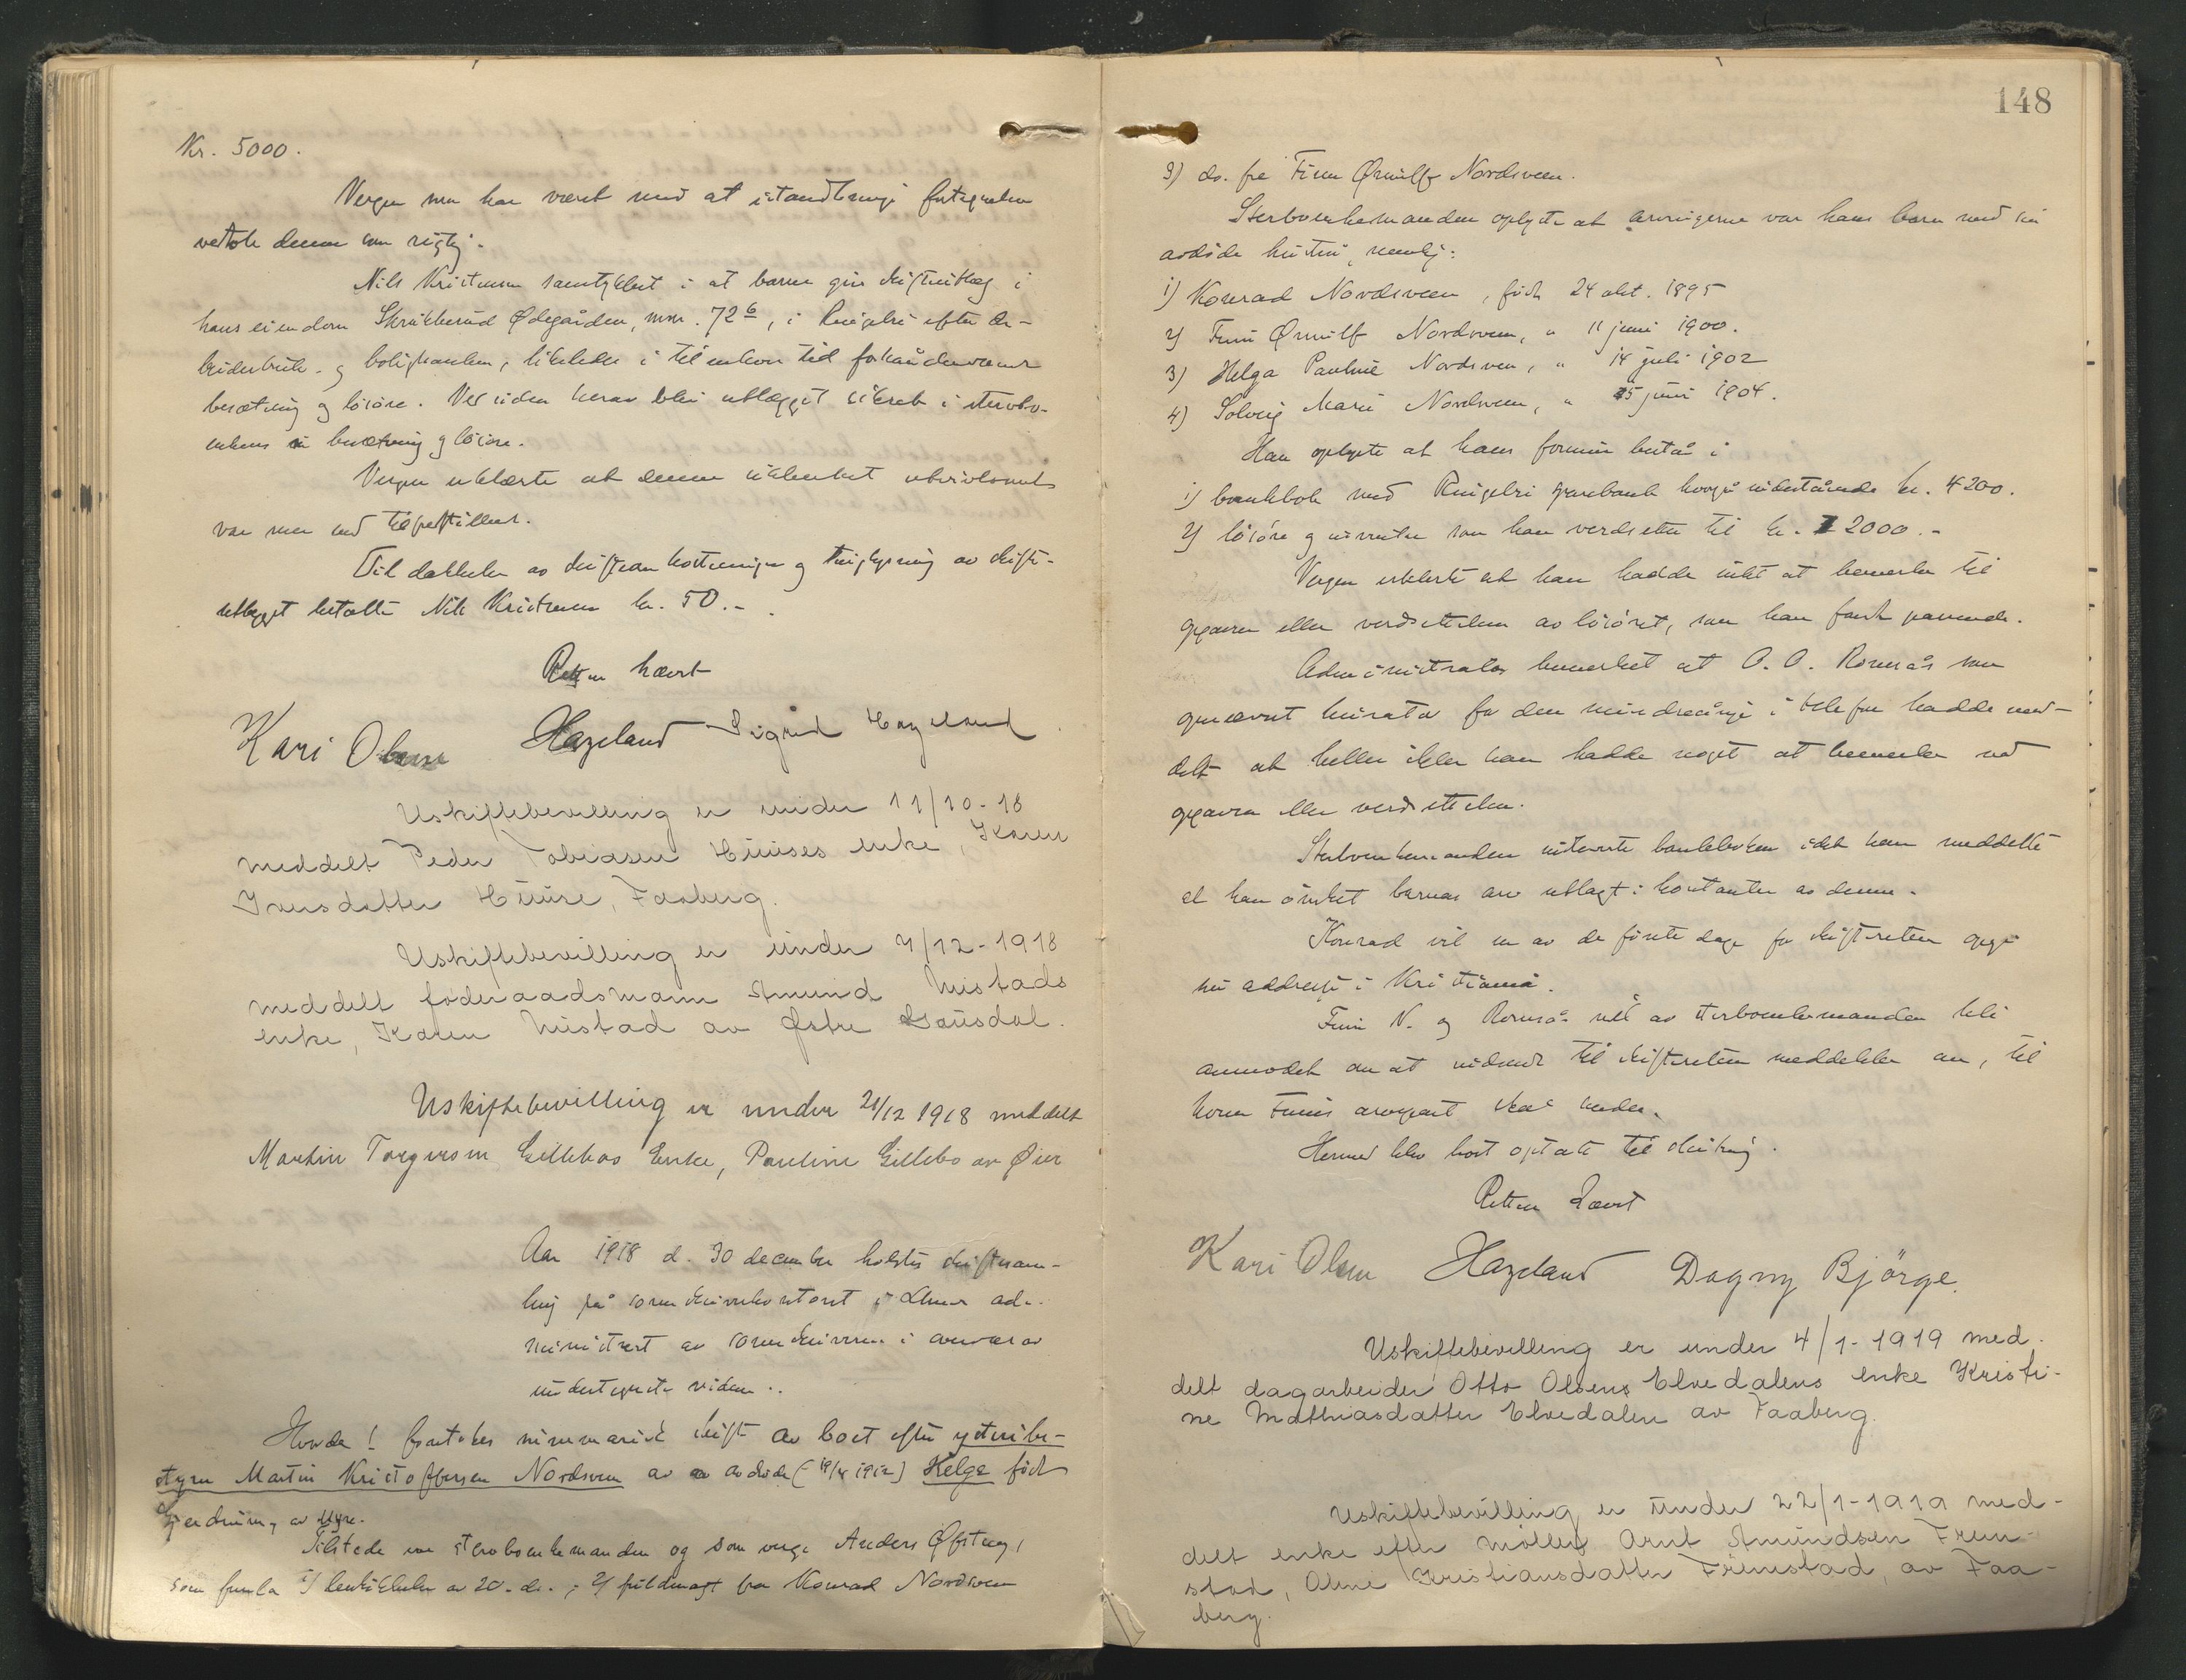 Kr. 5000.
Vergen som har været med at istandbringe fortegnelsen
vedtok denne som rigtig.
Nils Kristensen samtykket i at barna gis skifteutlæg i
hans eiendom Skrukkerud Ødegården, mnr. 72 6, i Ringebu efter Ar-
beiderbruk- og boligbanken, likeledes i til enhver tid forhåndenværende
besætning og løsøre. Ved siden herav blir utlægget sikret i stervbo-
enkens besætning og løsøre.
Vergen erklærte at denne sikkerhet utvilsomt
var mer end tilfredsstillende.
Til dækkelse av skifteomkostninger og tinglysning av skifte-
utlægget betalte Nils Kristensen kr. 50.-
Retten hævet
Kari Olsen Hazeland Sigrid Hazeland
Uskiftebevilling er under 11/10-18
meddelt Peder Tobiasen Huuses enke, Karen
Iversdatter Huuse, Faaberg.
Uskiftebevilling er under 4/12-1918
meddelt føderaadsmann Amund Nustads
enke, Karen Nustad av Østre Gausdal.
Uskiftebevilling er under 21/12 1918 meddelt
Martin Torgersen Gillebos Enke, Pauline Gillebo av Øier
Aar 1918 d. 30 december holdtes skiftesam-
ling på sorenskriverkontoret i Lhmr ad-
ministrert av sorenskriveren i nærvær av
undertegnede vidner.
Hvorda! foretokes summarisk skift av boet efter
Martin Kristoffersen Nordsveen av avdøde (19/4 1912) Helge født
Gjerdning av Øyre.
Tilstede var stervboenkemanden og som verge Anders Øfsteng,
som fremla 1) beskikkelse av 20. ds.; 2) fuldmagt fra Konrad Nordsveen
148
3) do. fra Finn Ørnulf Nordsveen.
Stervboenkemanden oplyste at arvingerne var hans barn med sin
avdøde hustru, nemlig:
1) Konrad Nordsveen, født 24 okt. 1895
2) Finn Ørnulf Nordsveen, " 11 juni 1900.
3) Helga Pauline Nordsveen, " 14 juli 1902
4) Solveig Marie Nordsveen, " 25 juni 1904.
Han oplyste at hans formue bestå i
1) bankbok med Ringebu sparebank hvorpå indestående kr. 4200.
2) løsøre og som han verdsetter til kr. 2000.-
Vergen erklærte at han hadde intet at bemerke til
opgaven eller verdsettelsen av løsøret, som han fandt passende.
Administrator bemerket at O. O. Romsås som
opnævnt kurator for den mindreårige i telefon hadde med-
delt at heller ikke han hadde noget at bemerke ved
opgaven eller verdsettelsen.
Stervboenkemanden bankboken idet han meddelte
at han ønsket barnas arv utlagt i kontanter av denne.
Konrad vil en av de første dage for skifteretten opgi
sin addresse i Kristiania.
Finn N. og Romsås vil av stervboenkemanden bli
anmodet om at indsende til skifteretten meddelelse om, til
hvem Finns arvepart skal sendes.
Hermed blev boet optat til slutning.
Retten hævet
Kari Olsen Hazeland Dagny Björge.
Uskiftebevilling er under 4/1-1919 med-
delt dagarbeider Otto Olsens Elvedalens enke Kristi-
ne Mathiasdatter Elvedalen av Faaberg.
Uskiftebevilling er under 22/1-1919 med-
delt enke efter møller Arnt Amundsen Frun-
stad, Oline Kristiansdatter Frunstad, av Faa-
berg.